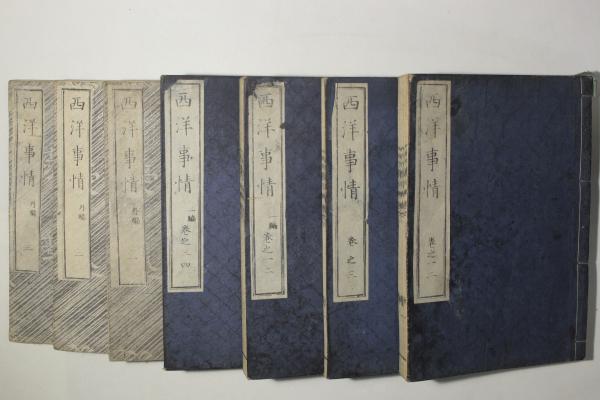 西洋事情
巻之一二
西洋事情
巻之三
西洋事情
二編
巻之一二
西洋事情
二編
巻之三四
西洋事情
外編
一
西洋事情
外編
二
西洋事情
外編
三